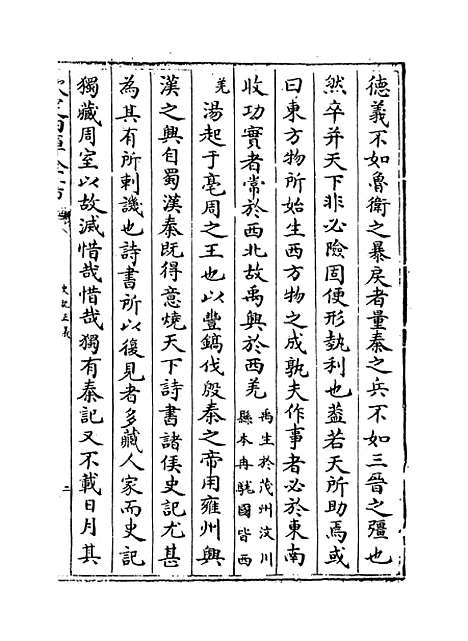 德義不如魯衛之暴戾者量秦之兵不如三晉之彊也
然卒并天下非必險固便形埶利也蓋若天所助焉或
曰東方物所始生西方物之成孰夫作事者必於東南
收功實者常於西北故禹興於西羌
禹生於茂州汶川
縣本冉駹國皆西
羌
湯起于亳周之王也以豐鎬伐殷秦之帝用雍州興
漢之興自蜀漢秦既得意燒天下詩書諸侯史記尤甚
為其有所刺譏也詩書所以復見者多藏人家而史記
獨藏周室以故滅惜哉惜哉獨有秦記又不載日月其
史記正義
二